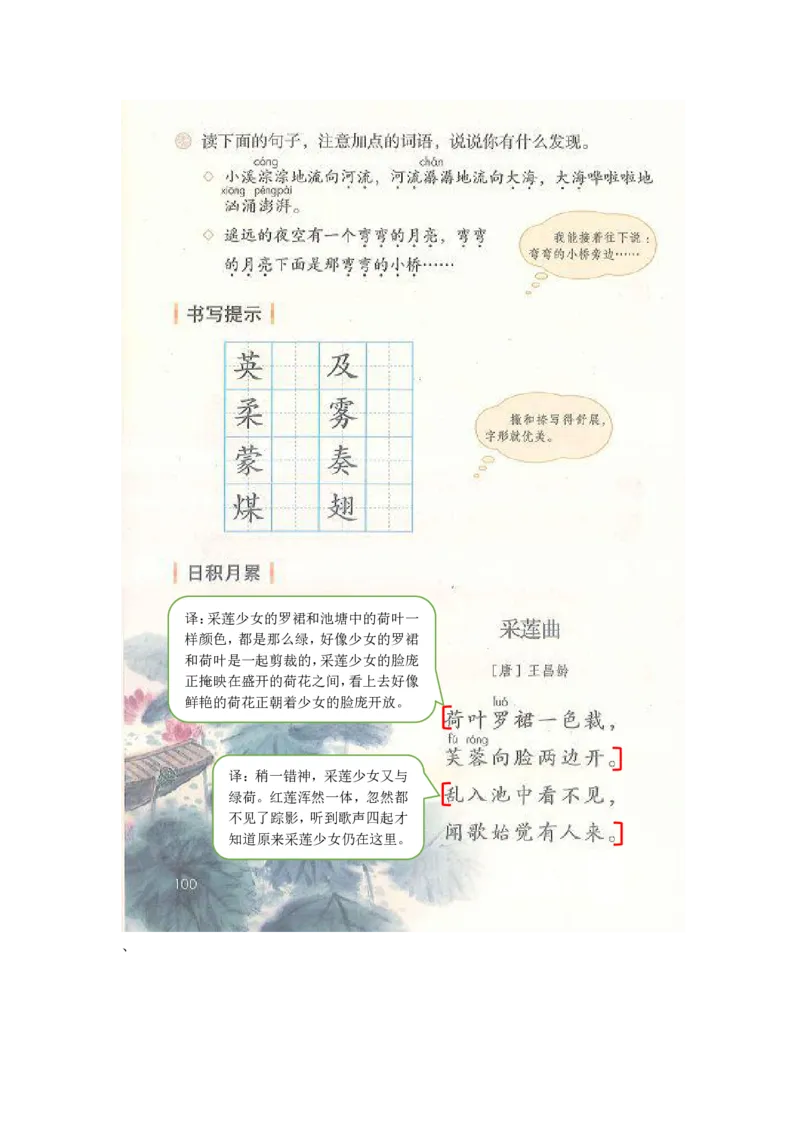 读下面的句子，注意加点的词语，说说你有什么发现。
cóng chán
◇ 小溪淙淙地流向河流，河流潺潺地流向大海，大海哗啦啦地
xiōng péngpài
汹涌澎湃。
◇ 遥远的夜空有一个弯弯的月亮，弯弯
的月亮下面是那弯弯的小桥……
我能接着往下说：
弯弯的小桥旁边……
书写提示
英 及
柔 雾
蒙 奏
煤 翅
撇和捺写得舒展，
字形就优美。
日积月累
译：采莲少女的罗裙和池塘中的荷叶一
样颜色，都是那么绿，好像少女的罗裙
和荷叶是一起剪裁的，采莲少女的脸庞
正掩映在盛开的荷花之间，看上去好像
鲜艳的荷花正朝着少女的脸庞开放。
采莲曲
［唐］王昌龄
luó
荷叶罗裙一色裁，
fú róng
芙蓉向脸两边开。
译：稍一错神，采莲少女又与
绿荷。红莲浑然一体，忽然都
不见了踪影，听到歌声四起才
知道原来采莲少女仍在这里。
乱入池中看不见，
闻歌始觉有人来。
100
、